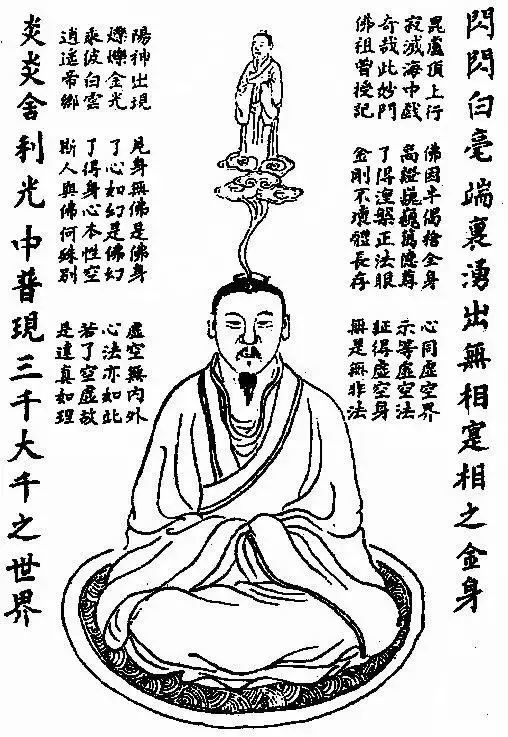 閃閃白毫端裏湧出無相寔相之金身
毘盧頂上行
寂滅海中戲
奇哉此妙門
佛祖曾授記
佛因半偈捨金身
高證巍巍萬德尊
了得涅槃正法眼
金剛不壞體長存
心同虛空界
示等虛空法
証得虛空身
無是無非法
陽神出現
爍金光
乘彼白雲
逍遙帝鄉
見身無佛是佛身
了心如幻是佛幻
了得身心本性空
斯人與佛何殊別
虛空無內外
心法亦如此
若了空虛故
是達真如理
炎炎舍利光中普現三千大千之世界